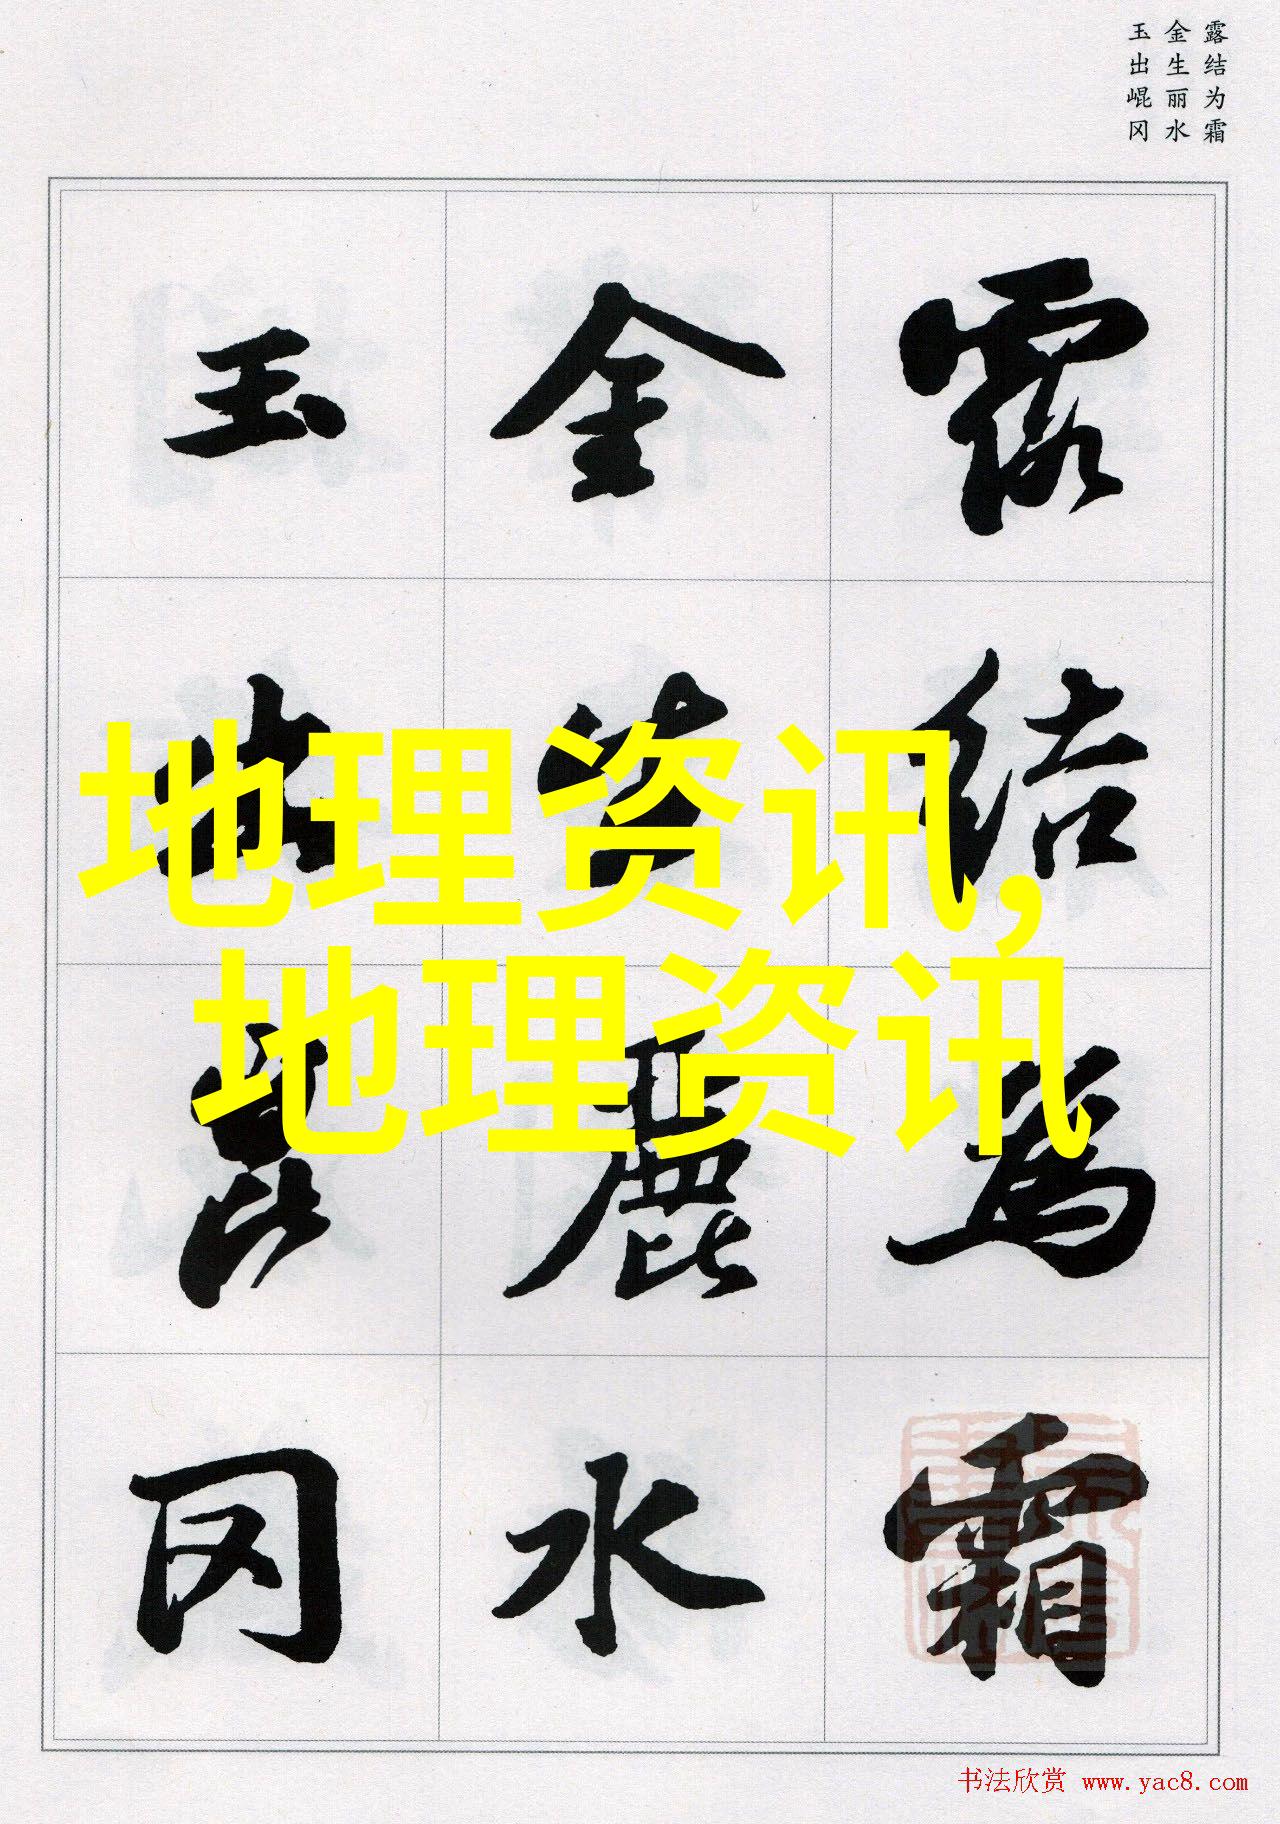 露结为霜
金生丽水
玉出崐冈
露結為霜
金生麗水
玉出崑冈
地理资讯,
地理资讯
书法欣赏 www.yac8.com